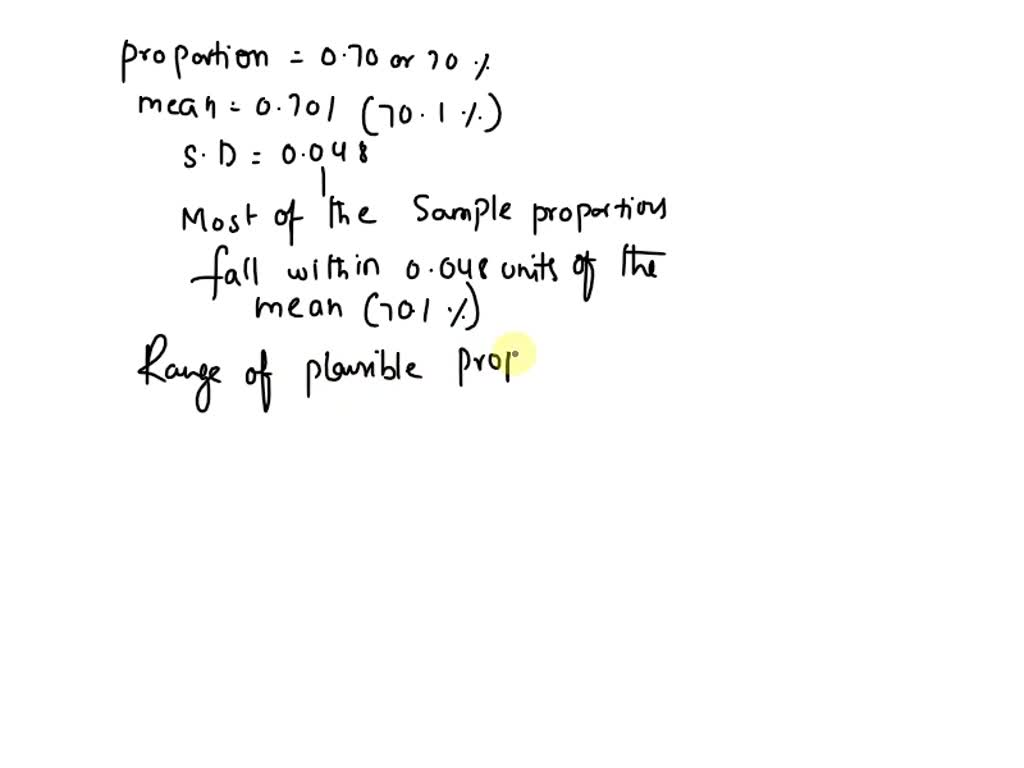 proportion = 0.70 or 70 %
mean = 0.701 (70.1 %)
S.D = 0.048
Most of the Sample proportions
fall within 0.048 units of the
mean (70.1 %)
Range of plausible prop